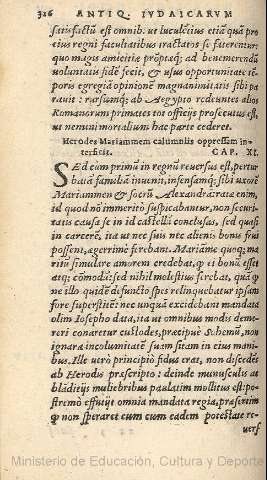 316 ANTIQ. IVDAICARVM
satisfactũ est omnib. ut luculẽtius etiã quã pro
eius regni facultatibus tractatos se faterentur:
quo magis amicitiæ prõptaeq; ad benemerendũ
voluntatis fidẽ fecit, & usus opportunitate tẽ
poris egregiã opinionẽ magnanimitatis sibi pa
rauit: rursumq; ab Aegypto redeuntes alios
Romanorum primates tot officijs prosecutus est,
ut nemini mortalium hac parte cederet.
Herodes Mariammem calumniis oppressam in-
terficit. CAP. XI.
SEd cum primũ in regnũ reuersus est, pertur
batã familiã inuenit, infensamq; sibi uxorẽ
Mariammen & socrũ Alexandrã: ratæ enim,
id quod nõ immeritò suspicabantur, non securi
tatis causa se in id castelli conclusas, sed quasi
in carcerẽ, ita ut nec suis nec alienis bonis frui
possent, ægerrimè ferebant. Mariãme quoq; ma
ritũ simulare amorem credebat, ꝙ ei bono esset
atq; cõmodũ: sed nihil molestius ferebat, quã ꝙ
ne illo quidẽ defuncto spes relinqueretur ipsam
fore superstitẽ: nec unquã excidebant mandata
olim Iosepho data, ita ut omnibus modis deme-
reri conaretur custodes, præcipuè Sohemũ, non
ignara incolumitatẽ suam sitam in eius mani
bus. Ille utrò principiò fidus erat, non discedẽs
ab Herodis præscripto: deinde munusculis ac
blãditijs muliebribus paulatim mollitus est: po-
stremò effutijt omnia mandata regia, præsertim
ꝙ non speraret eum cum eadem potestate re-
uers
Ministerio de Educación, Cultura y Deporte